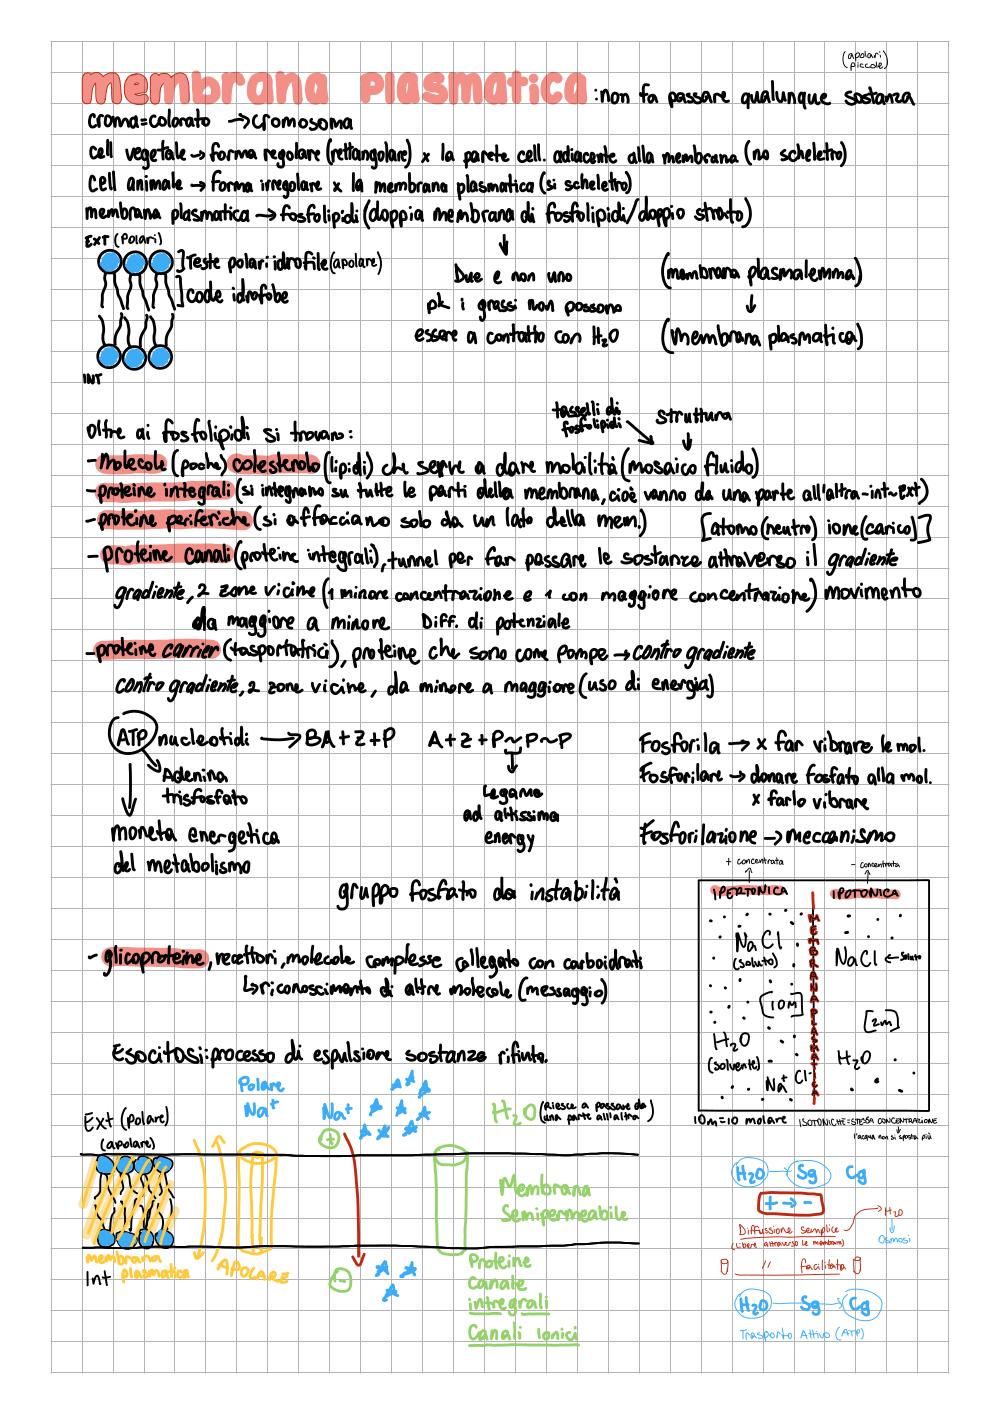 (apolari
piccole)
membrana plasmatica :non fa passare qualunque sostanza
croma=colorato →cromosoma
cell vegetale → forma regolare (rettangolare) x la parete cell. adiacente alla membrana (no scheletro)
cell animale → forma irregolare x la membrana plasmatica (si scheletro)
membrana plasmatica → fosfolipidi (doppia membrana di fosfolipidi/doppio strato)
EXT (Polari)
Teste polari idrofile (apolare)
Code idrofobe
INT
Due e non uno
pk i grassi non possono
essere a contatto con H₂O
(membrana plasmalemma)
↓
(membrana plasmatica)
tasselli di
fosfolipidi
struttura
Oltre ai fosfolipidi si trovano:
-Molecole (poche) colesterolo (lipidi) che serve a dare mobilità (mosaico fluido)
-proteine integrali (si integrano su tutte le parti della membrana, cioè vanno da una parte all'altra-int~Ext)
-proteine periferiche (si affacciano solo da un lato della mem.)
[atomo (neutro) ione (carico)]
-proteine canali (proteine integrali), tunnel per far passare le sostanze attraverso il gradiente
gradiente, 2 zone vicine (1 minore concentrazione e 1 con maggiore concentrazione) movimento
da maggiore a minore Diff. di potenziale
-proteine carrier (tasportatrici), proteine che sono come pompe → contro gradiente
contro gradiente, 2 zone vicine, da minore a maggiore (uso di energia)
ATP nucleotidi → BA+Z+P A+Z+P~P~P
Adenina
trisfosfato
moneta energetica
del metabolismo
Legame
ad altissima
energy
Fosforila → x far vibrare le mol.
Fosforilare → donare fosfato alla mol.
x farlo vibrare
Fosforilazione → meccanismo
gruppo fosfato da instabilità
+ concentrata
- concentrata
IPERTONICA
IPOTONICA
MEMBRANA PLASMATICA
NaCl
(soluto)
[10M]
H₂O
(solvente)
Na⁺ Cl⁻
NaCl ← Soluto
[2m]
H₂O
10m=10 molare
ISOTONICHE=STESSA CONCENTRAZIONE
l'acqua non si sposta più
- glicoproteine, recettori, molecole complesse collegato con carboidrati
↳riconoscimento di altre molecole (messaggio)
Esocitosi:processo di espulsione sostanze rifiuto.
Ext (polare)
(apolare)
Polare
Na⁺
Na⁺
+
H₂O (Riesce a passare da
una parte all'altra)
Membrana
Semipermeabile
membrana
plasmatica
Int
APOLARE
-
Proteine
Canale
integrali
Canali Ionici
H₂O → Sg Cg
+ → -
Diffussione semplice
(libere attraverso le membran)
H₂O
↓
Osmosi
" facilitata
H₂O → Sg → Cg
Trasporto Attivo (ATP)